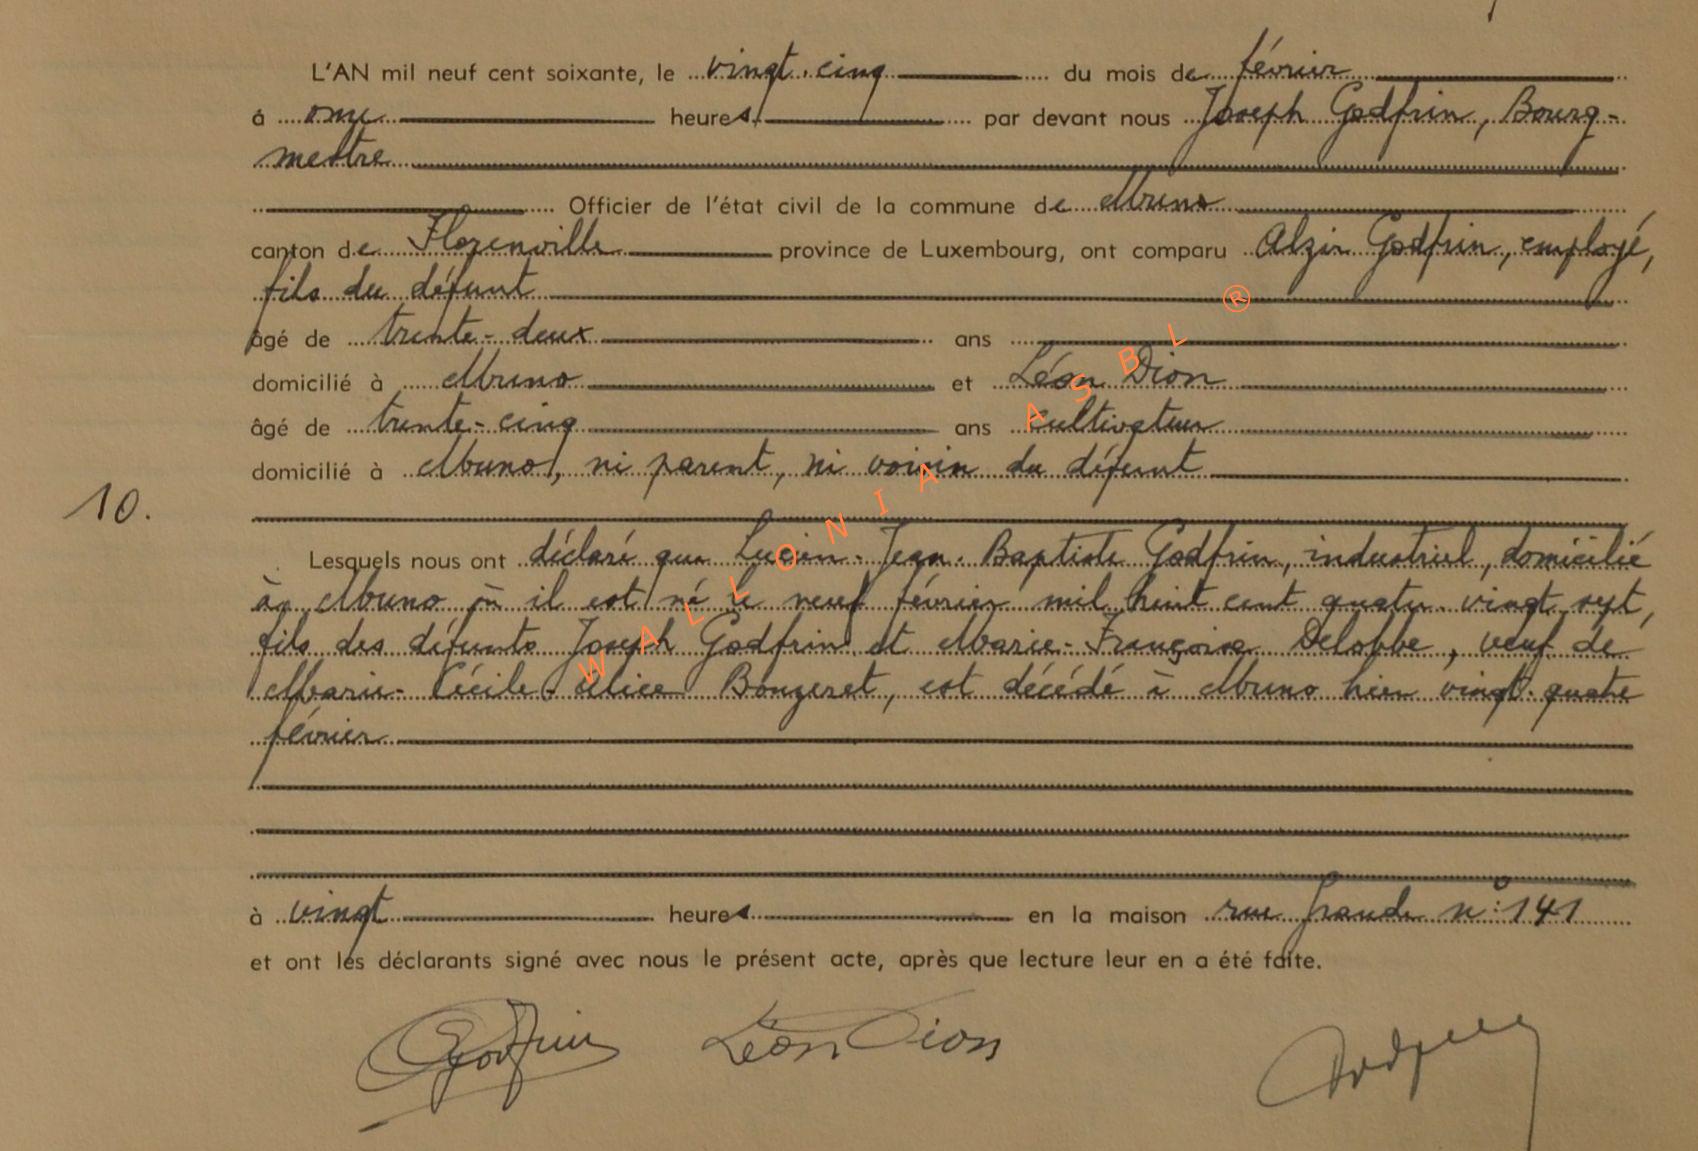 L'AN mil neuf cent soixante, le vingt-cinq du mois de février
à onze heures par devant nous Joseph Godfrin, Bourg-
mestre
Officier de l'état civil de la commune de Muno
canton de Florenville province de Luxembourg, ont comparu Alzir Godfrin, employé,
fils du défunt
âgé de trente-deux ans
domicilié à Muno et Léon Dion
âgé de trente-cinq ans cultivateur
domicilié à Muno, ni parent, ni voisin du défunt
10.
Lesquels nous ont déclaré que Lucien-Jean-Baptiste Godfrin, industriel, domicilié
à Muno où il est né le neuf février mil huit cent quatre-vingt-sept,
fils des défunts Joseph Godfrin et Marie-Françoise Delobbe, veuf de
Marie-Cécile-Alice Bongeret, est décédé à Muno hier vingt-quatre
février
à vingt heures en la maison rue Grande n° 141
et ont les déclarants signé avec nous le présent acte, après que lecture leur en a été faite.
Godfrin Léon Dion
WALLONIA ASBL ®